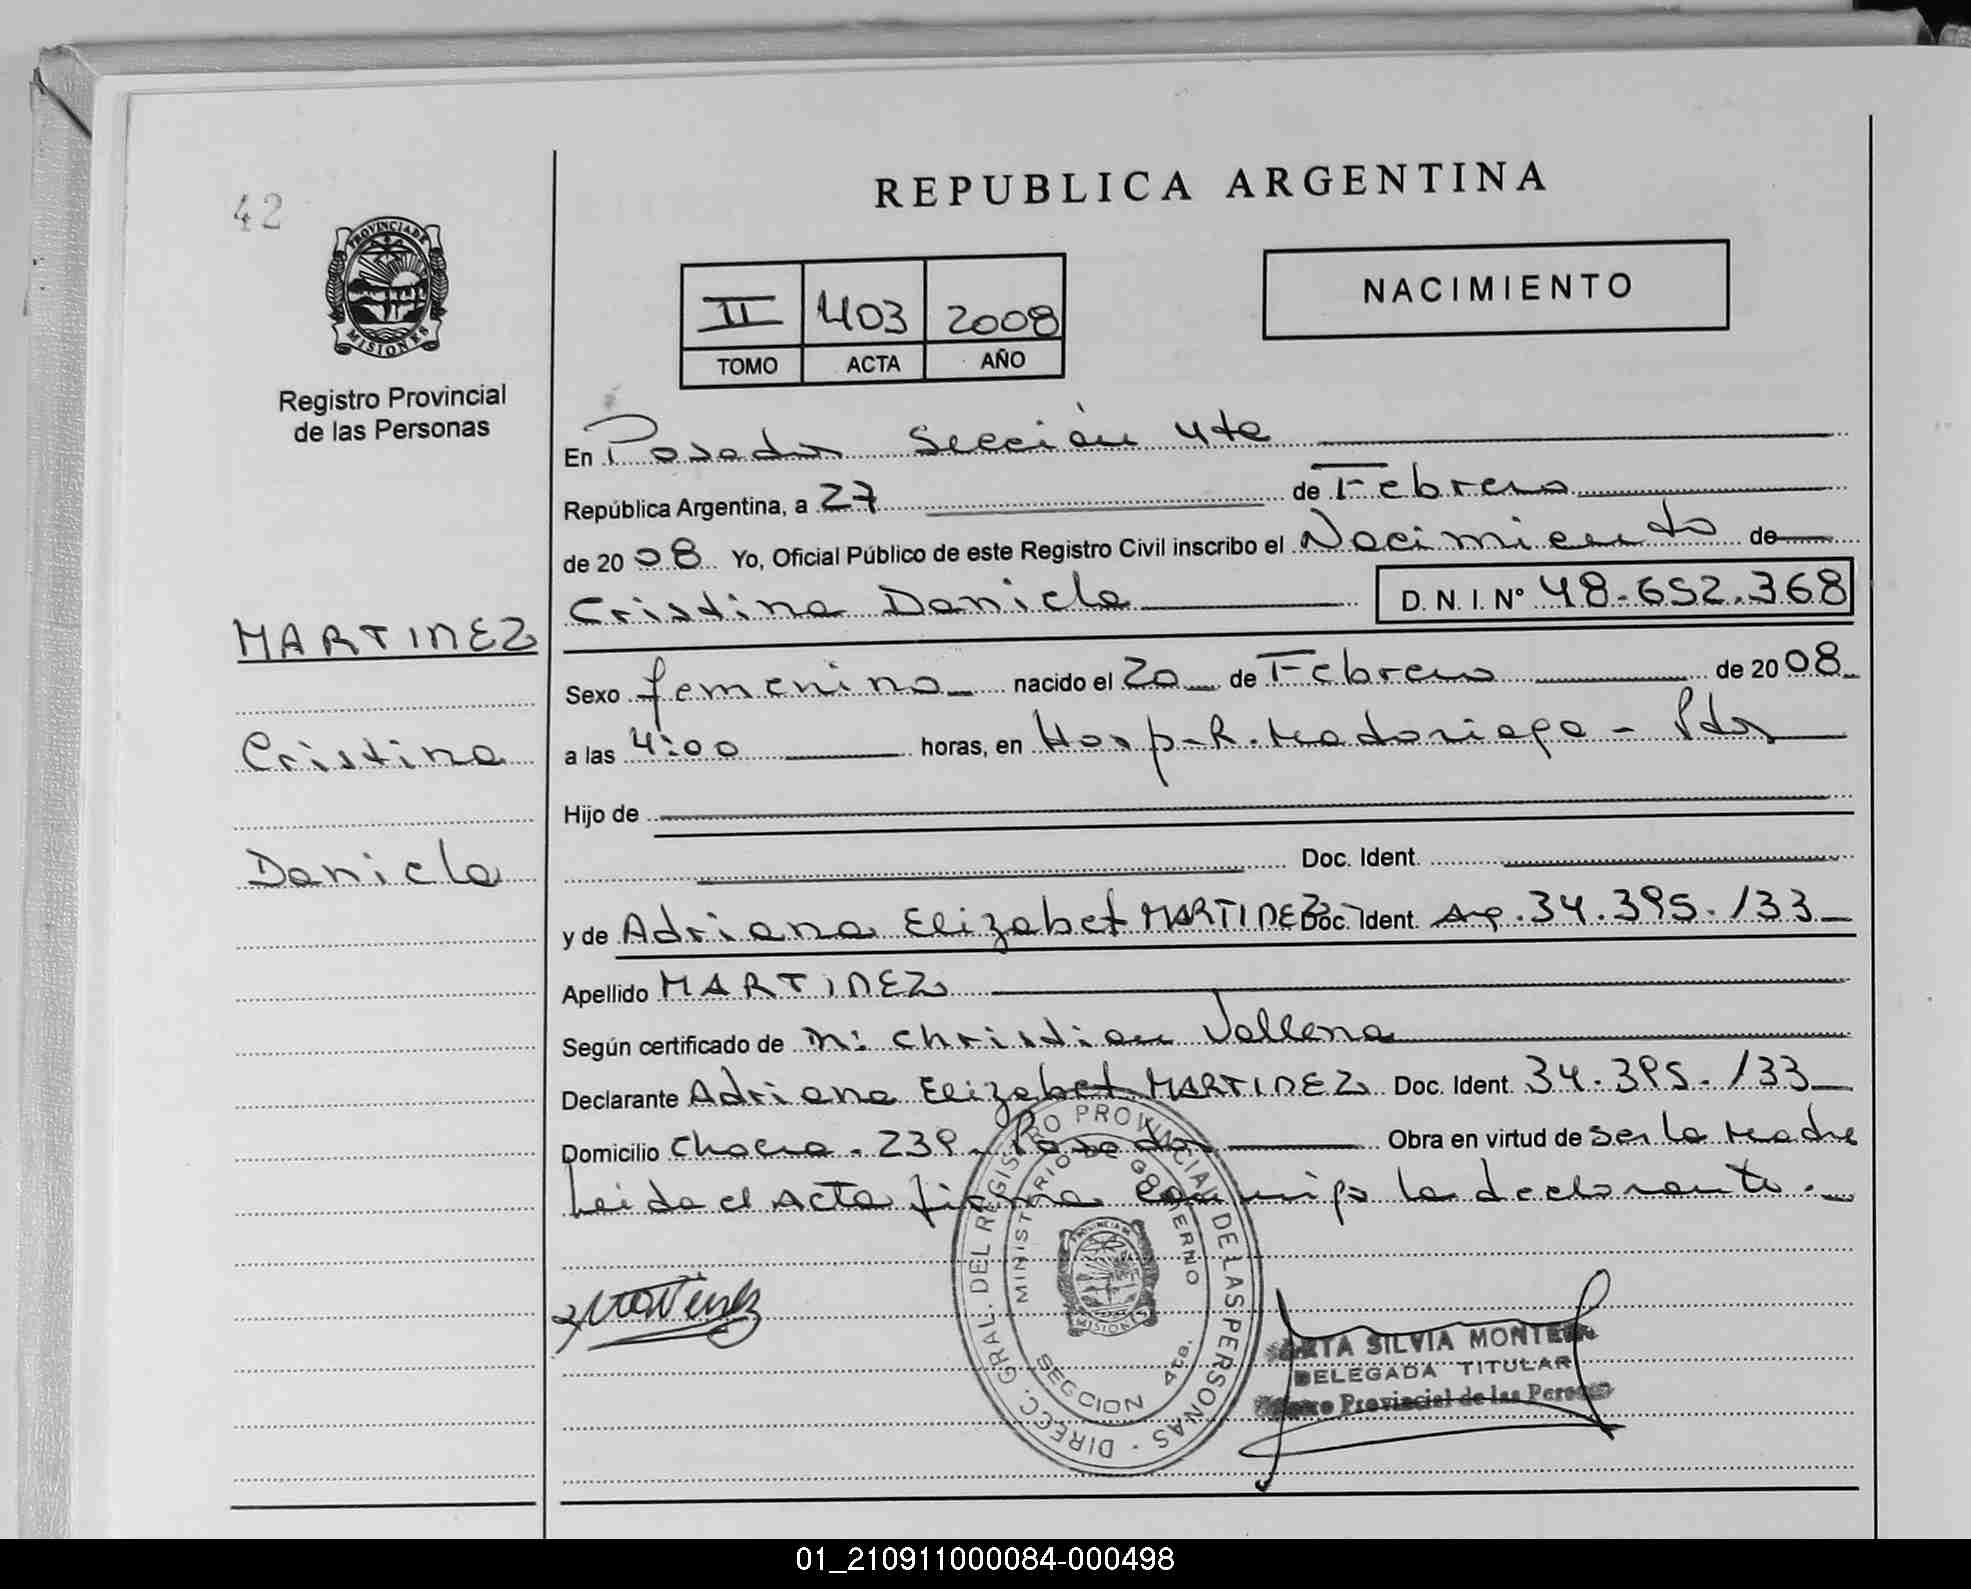 REPUBLICA ARGENTINA
42
PROVINCIA DE
MISIONES
II 403 2008
TOMO ACTA AÑO
NACIMIENTO
Registro Provincial
de las Personas
En Posadas Sección 4ta
República Argentina, a 27 de Febrero
de 2008 Yo, Oficial Público de este Registro Civil inscribo el Nacimiento de
Cristina Daniela D. N. I. Nº 48.652.368
MARTINEZ
Cristina
Daniela
Sexo femenino nacido el 20 de Febrero de 2008
a las 4:00 horas, en Hosp. R. Madariaga - Pdas
Hijo de
Doc. Ident.
y de Adriana Elizabet MARTINEZ Doc. Ident. Arg. 34.395.133
Apellido MARTINEZ
Según certificado de Christian Vallena
Declarante Adriana Elizabet MARTINEZ Doc. Ident. 34.395.133
Domicilio Chacra. 239. Posadas Obra en virtud de ser la Madre
Leida el Acta firma conmigo la declarante.
DIRECC. GRAL. DEL REGISTRO PROVINCIAL DE LAS PERSONAS
MINISTERIO DE GOBIERNO
PROVINCIA DE
MISIONES
SECCION 4ta.
Martinez
SILVIA
DELEGADA TITULAR
Provincial de las
01_210911000084-000498